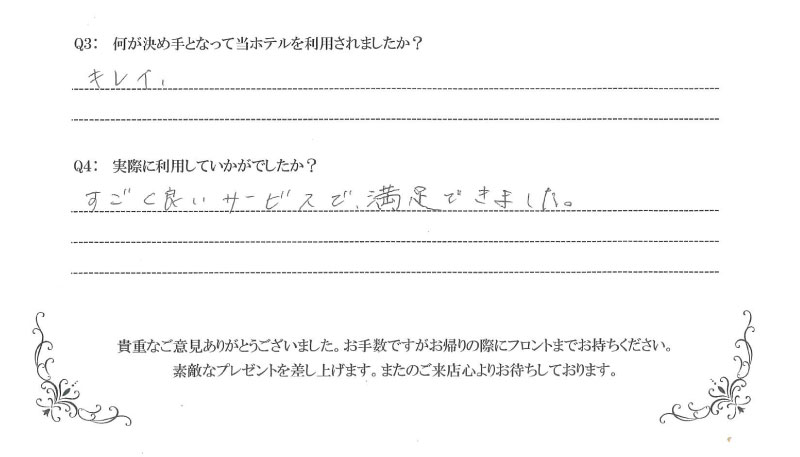 Q3: 何が決め手となって当ホテルを利用されましたか？
キレイ、
Q4: 実際に利用していかがでしたか？
すごく良いサービスで、満足できました。
貴重なご意見ありがとうございました。お手数ですがお帰りの際にフロントまでお持ちください。
素敵なプレゼントを差し上げます。またのご来店心よりお待ちしております。